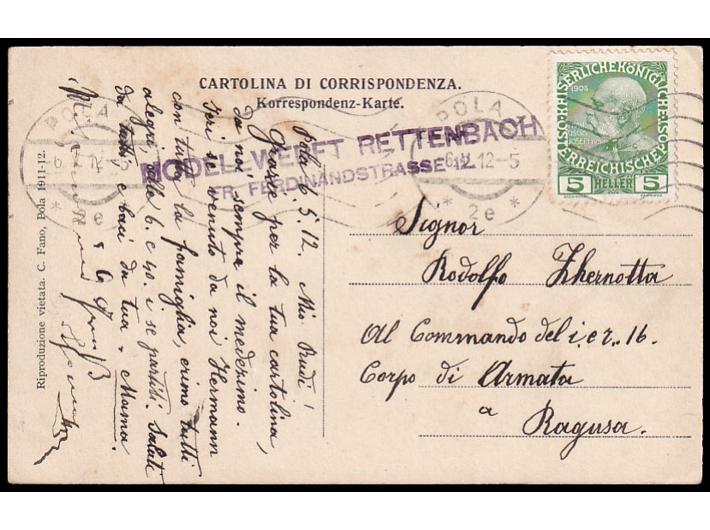 CARTOLINA DI CORRISPONDENZA.
Korrespondenz-Karte.
POLA
6. V. 12-5
* 2e *
POLA
6. V. 12-5
* 2e *
MODEL WEBET RETTENBACH
FR. FERDINANDSTRASSE 12
KAISERLICHE KÖNIGLICHE
1908
ÖSTERREICHISCHE POST
5 HELLER 5
Riproduzione vietata. C. Fano, Pola 1911-12.
Pola 6. 5. 12. Mio Rudi!
Grazie per la tua cartolina,
da noi sempre il medesimo.
Ieri è venuto da noi Hermann
con tutta la famiglia, erimo tutti
alegri alle 6. e 40. i se partiti. Saluti
da tutti e baci da tua Mama.
Signor
Rodolfo Zhernotta
Al Commando del i. e r. 16.
Corpo di Armata
a
Ragusa.